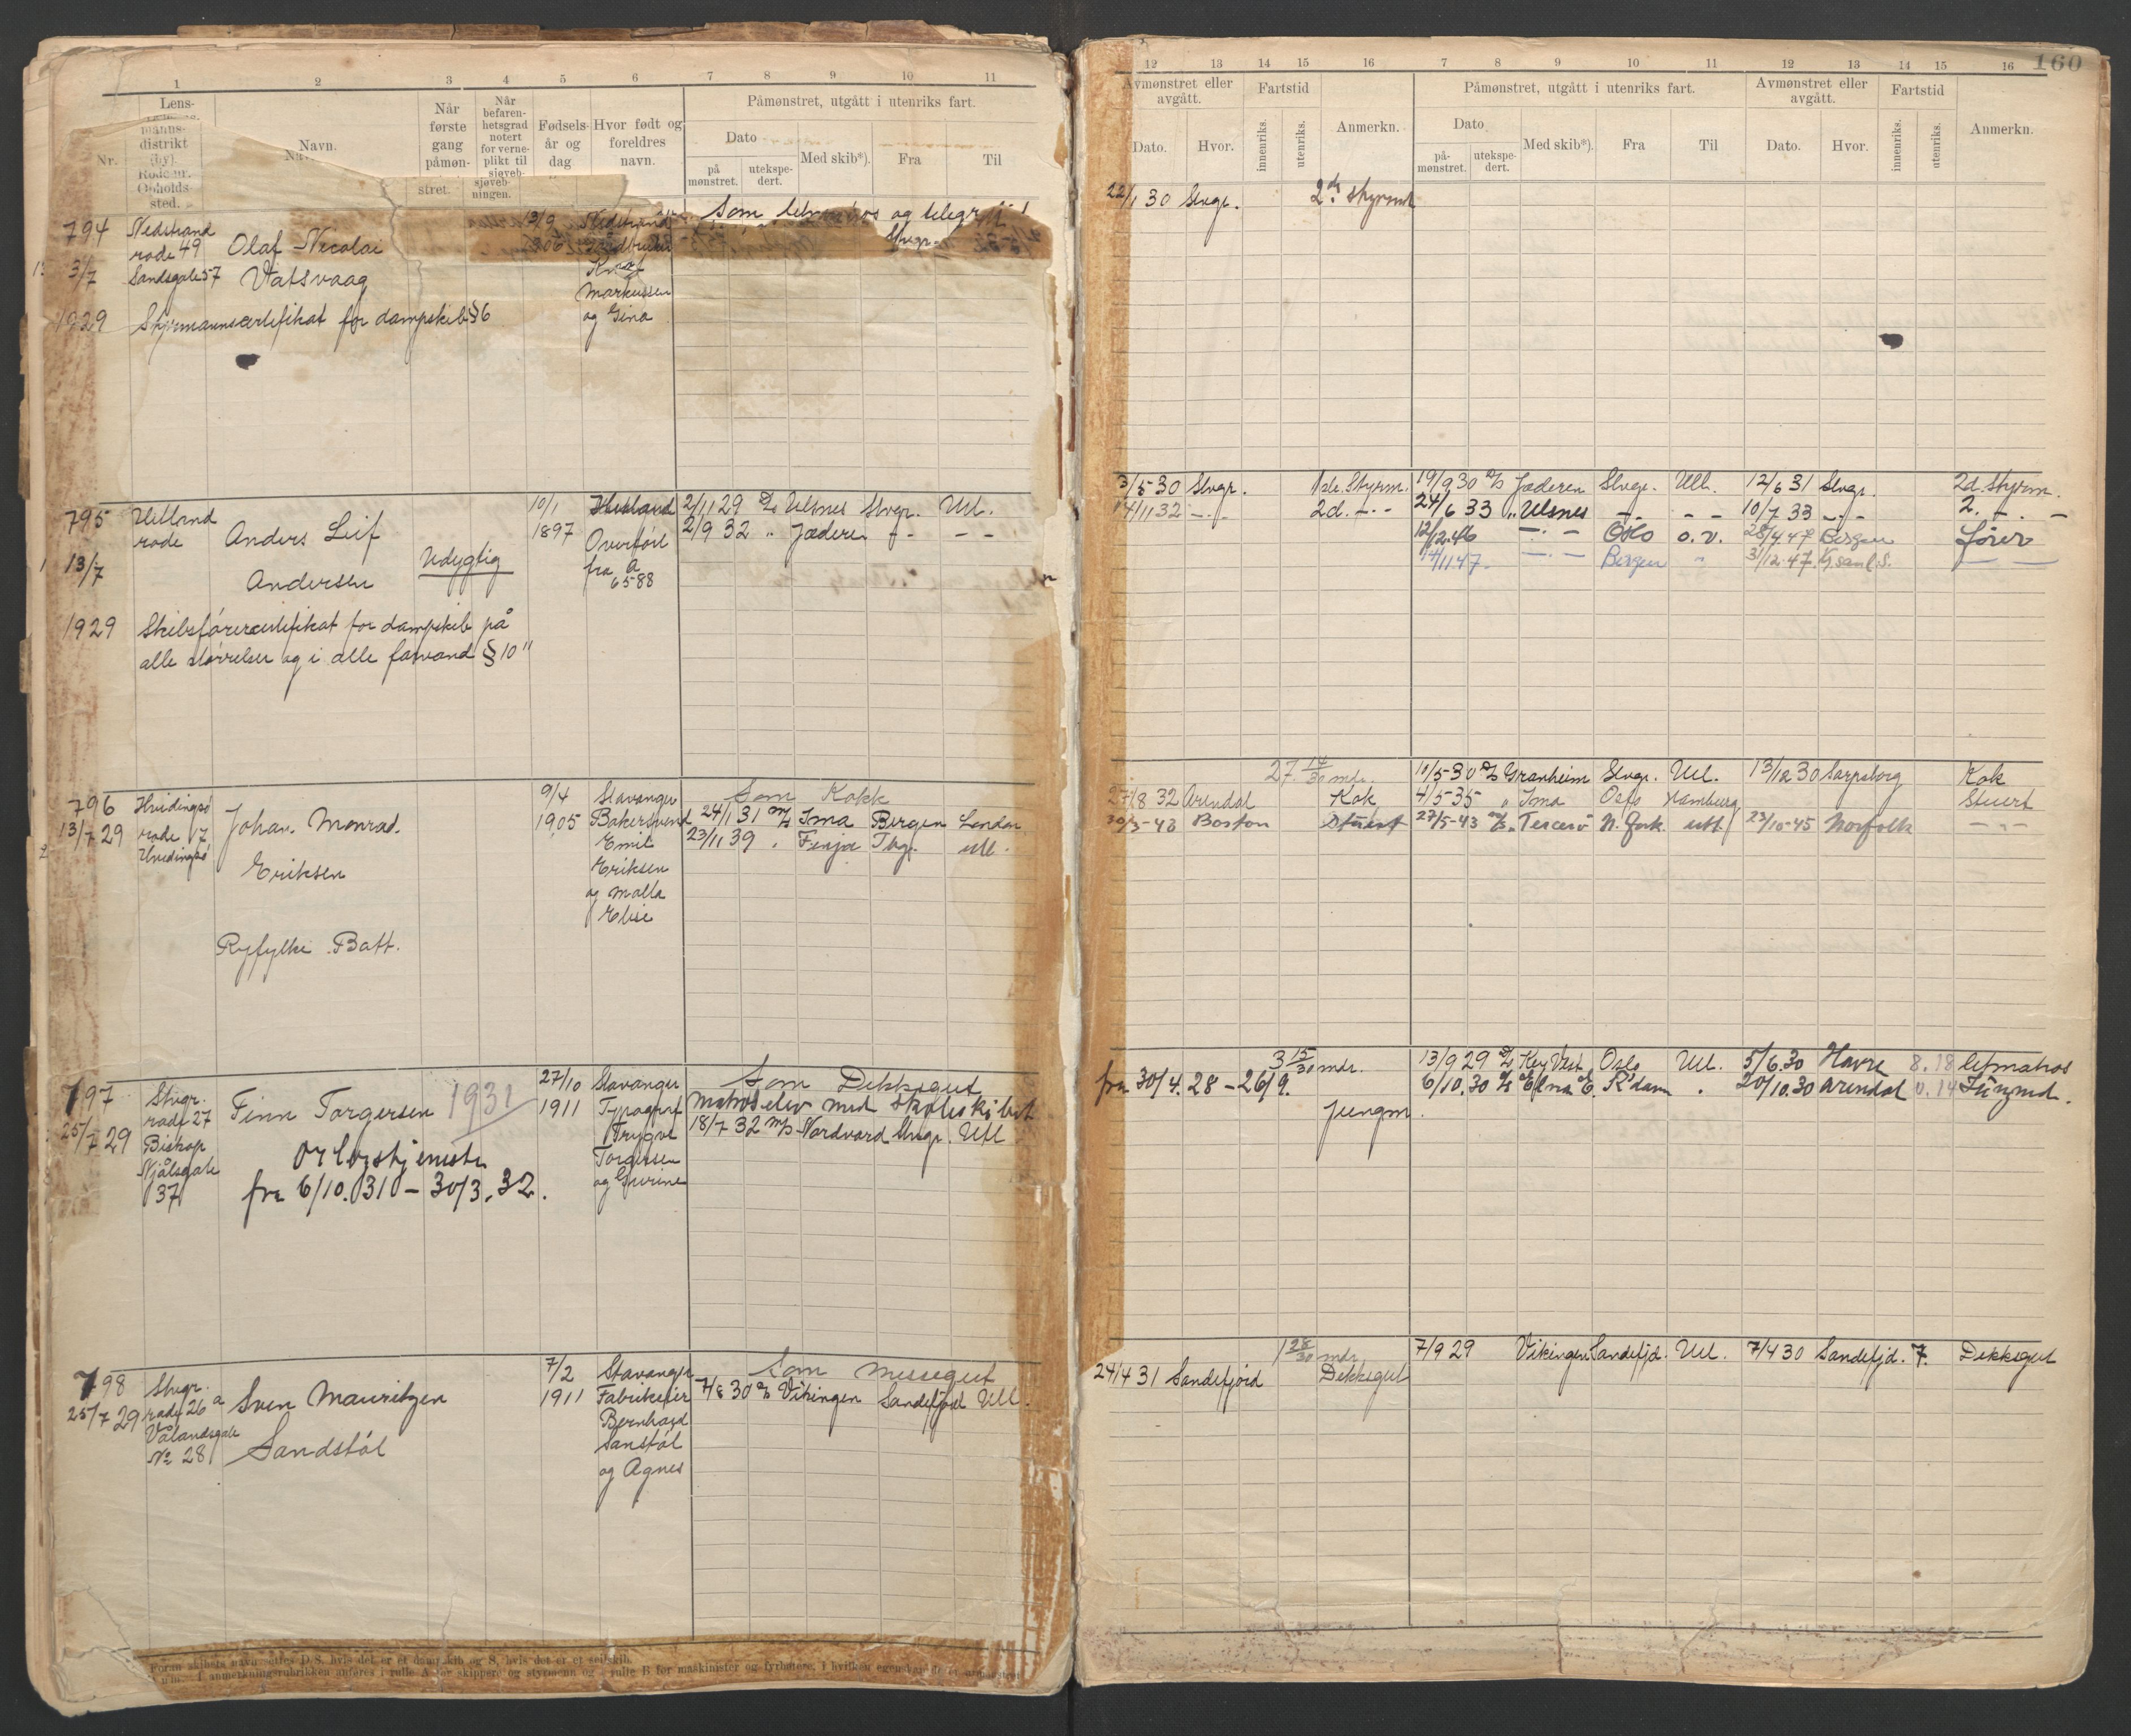 1 2 3 4 5 6 7 8 9 10 11
Nr.
Lens-
manns-
distrikt
(by).
Rode nr.
Opholds-
sted.
Navn.
Når
første
gang
påmøn-
stret.
Når
befaren-
hetsgrad
notert
for verne-
plikt til
sjøveb-
ningen.
Fødsels-
år og
dag
Hvor født og
foreldres
navn.
Påmønstret, utgått i utenriks fart.
Dato
på
mønstret.
utekspe-
dert.
Med skib*).
Fra
Til
794
3/7
1929
Nedstrand
rode 49
Sandsgale 57
Olaf Nicolai
Vatsvaag
Styrmannscertifikat for dampskib § 6
13/9
Nedstrand
Markussen
og Gina
Som og
Stvgr.
795
13/7
1929
Hetland
rode
Anders Leif
Andersen
Udygtig
Skibsførercertifikat for dampskib på
alle størrelser og i alle farvand § 10"
10/1
1897
Hetland
Overført
fra A
6588
2/11 29 D/S Ulsnes Stvgr. Utl.
2/9 32 " Jæderen - - -
796
13/7 29
Hvidingsø
rode 17
Hvidingsø
Johan Monrad.
Eriksen
Ryfylke Batt.
9/4
1905
Stavanger
Bakersvend
Emil
Eriksen
og Malla
Elise
Som Kokk
24/1 31 M/S Ima Bergen London
23/11 39 " Finja Tbg. utl.
797
25/7 29
Stvgr.
rode 27
Biskop
Njålsgate
37
Finn Torgersen 1931
Orlogstjeneste
fra 6/10.31 - 30/3.32.
27/10
1911
Stavanger
Typograf
Trygve
Torgersen
og Gurine
Som Dekksgut
Matroselev med skoleskibet
18/7 32 M/S Nordvard Stvgr. Utl
798
25/7 29
Stvgr.
rode 26 a
Vålandsgate
No 28
Sven Mauritzen
Sandstøl
7/2
1911
Stavanger
Fabrikeier
Bernhard
Sanstøl
og Agnes
Som messegut
7/8 30 D/S Vikingen Sandefjord Utl.
Foran skibets navn settes D/S, hvis det er et dampskib og S, hvis det er et seilskib.
I anmerkningsrubrikken anføres i rulle A for skippere og styrmenn og i rulle B for maskinister og fyrbøtere, i hvilken egenskap de er
160
12 13 14 15 16 7 8 9 10 11 12 13 14 15 16
Avmønstret eller
avgått.
Dato.
Hvor.
Fartstid
innenriks.
utenriks.
Anmerkn.
Påmønstret, utgått i utenriks fart.
Dato
på-
mønstret.
utekspe-
dert.
Med skib*).
Fra
Til
Avmønstret eller
avgått.
Dato.
Hvor.
Fartstid
innenriks.
utenriks.
Anmerkn.
22/1 30 Stvgr. 2d. styrmd
3/5 30 Stvgr. 1ste. Styrm. 19/9 30 D/S Jæderen Stvgr. Utl. 12/6 31 Stvgr. 2d. styrm.
14/11 32 -"- 2d. -"- 24/6 33 " Ulsnes -"- - - 10/7 33 -"- 2. - " -
12/12.46 -"- Oslo o.v. 28/4 47 Bergen fører
14/11 47. -"- Bergen " 31/12.47.
27 14/30 mdr. 10/5 30 D/S Granheim Stvgr. Utl. 13/12 30 Sarpsborg Kok
27/8 32 Arendal Kok 4/5 35 " Ima Oslo Hamburg Stuert
30/3-43 Boston Stuert 27/5-43 M/S Tercero N. York utl. 23/10-45 Norfolk -"-
3 15/30 mdr. 13/9 29 D/S Key West Oslo Utl. 5/6.30 Havre 8.18 letmatros
fra 30/4.28 - 26/9. 6/10.30 D/S Elna E. R'dam " 20/10.30 Arendal 0.14 Jungmd.
Jungm.
1 28/30 mdr 7/9 29 Vikingen Sandefjd. Utl. 7/4 30 Sandefjd. 7. Dekksgut
24/4 31 Sandefjord Dekksgut